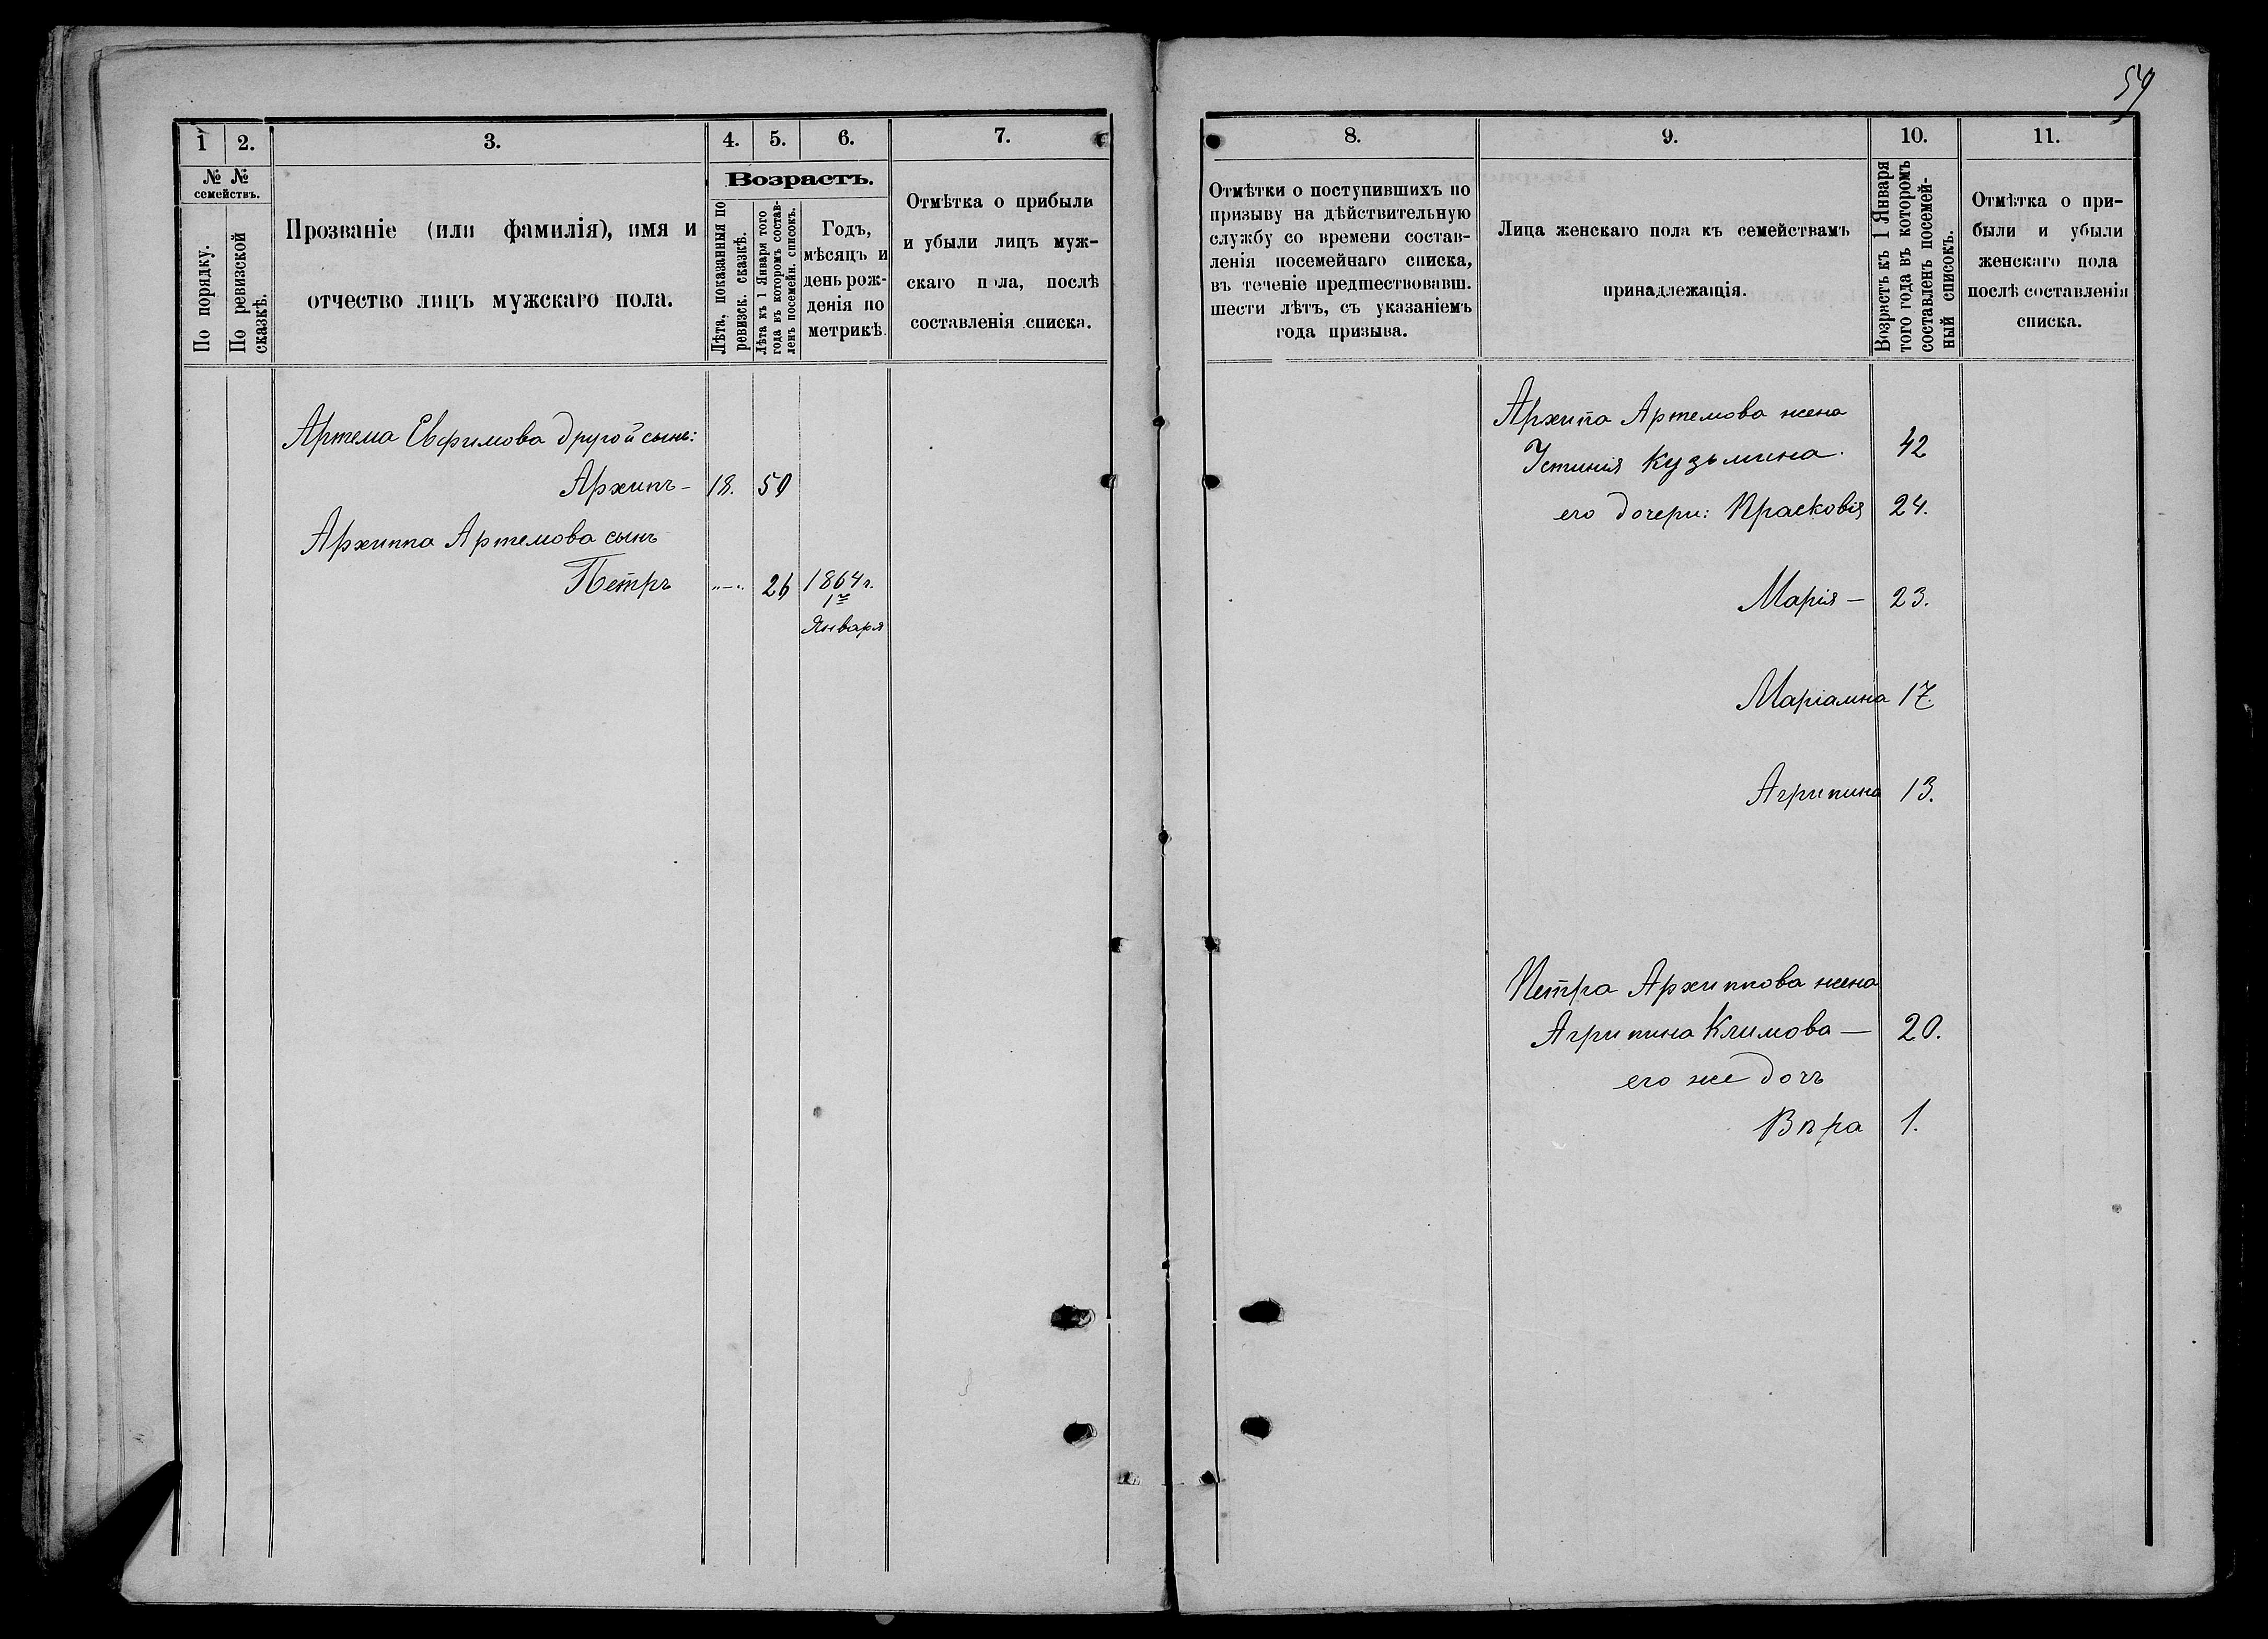 59
1
2.
3.
4.
5.
6.
7.
№ №
семействъ.
По порядку.
По ревизской
сказкѣ.
Прозваніе (или фамилія), имя и
отчество лицъ мужскаго пола.
Возрастъ.
Лѣта, показанныя по
ревизск. сказкѣ.
Лѣта къ 1 Января того
года въ которомъ состав-
ленъ посемейн. списокъ.
Годъ,
мѣсяцъ и
день рож-
денія по
метрикѣ.
Отмѣтка о прибыли
и убыли лицъ муж-
скаго пола, послѣ
составленія списка.
Артема Евфимова другой сынъ:
Архипъ - 18. 50
Архиппа Артемова сынъ
Петръ "-". 26 1864 г.
1го
Января
8.
9.
10.
11.
Отмѣтки о поступившихъ по
призыву на дѣйствительную
службу со времени состав-
ленія посемейнаго списка,
въ теченіе предшествовавш.
шести лѣтъ, съ указаніемъ
года призыва.
Лица женскаго пола къ семействамъ
принадлежащія.
Возрастъ къ 1 Января
того года въ которомъ
составленъ посемей-
ный списокъ.
Отмѣтка о при-
были и убыли
женскаго пола
послѣ составленія
списка.
Архипа Артемова жена
Устинія Кузьмина. 42
его дочери: Прасковія 24.
Марія - 23.
Маріамна 17.
Агрипина 13.
Петра Архиппова жена
Агрипина Климова - 20.
его же дочь
Вѣра 1.